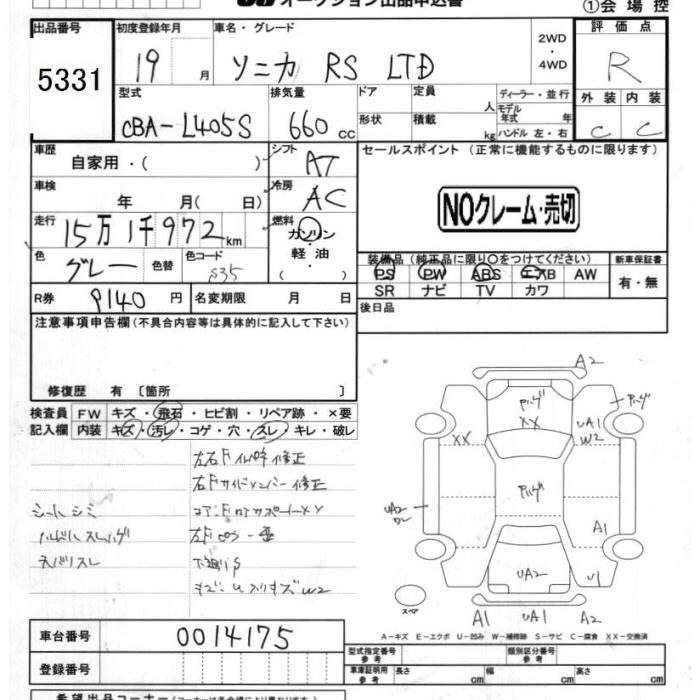 オークション出品申込書
①会場控
出品番号
5331
初度登録年月
19 月
車名・グレード
ソニカ RS LTD
2WD
・
4WD
評価点
R
型式
CBA-L405S
排気量
660 cc
ドア
定員
人
ディーラー・並行
モデル
年式 年
形状
積載
kg
ハンドル 左・右
外装 内装
C C
車歴
自家用・( )
シフト
AT
セールスポイント (正常に機能するものに限ります)
車検
年 月( 日)
冷房
AC
NOクレーム・売切
走行
15万1千972km
燃料
ガソリン
・
軽油
( )
色
グレー
色替
色コード
S35
装備品 (純正品に限り○をつけてください)
新車保証書
PS PW ABS エアB AW
SR ナビ TV カワ
有・無
R券
9140 円
名変期限 月 日
後日品
注意事項申告欄(不具合内容等は具体的に記入して下さい)
修復歴 有 〔箇所 〕
検査員
記入欄
FW キズ・飛石・ヒビ割・リペア跡・×要
内装 キズ・汚レ・コゲ・穴・スレ・キレ・破レ
左右Fインパネ修正
右Fサイドメンバー修正
シートシミ
コアF ロアサポートXX
下廻りS
A2
XX
UA1
W2
UA2
A1
UA2
U1
スペア
A1 UA1 A2
A-キズ E-エクボ U-凹み W-補修跡 S-サビ C-腐食 XX-交換済
車台番号
0014175
登録番号
型式指定番号
参考
類別区分番号
参考
車庫証明用
参考
長さ cm
幅 cm
高さ cm
希望出品コーナー